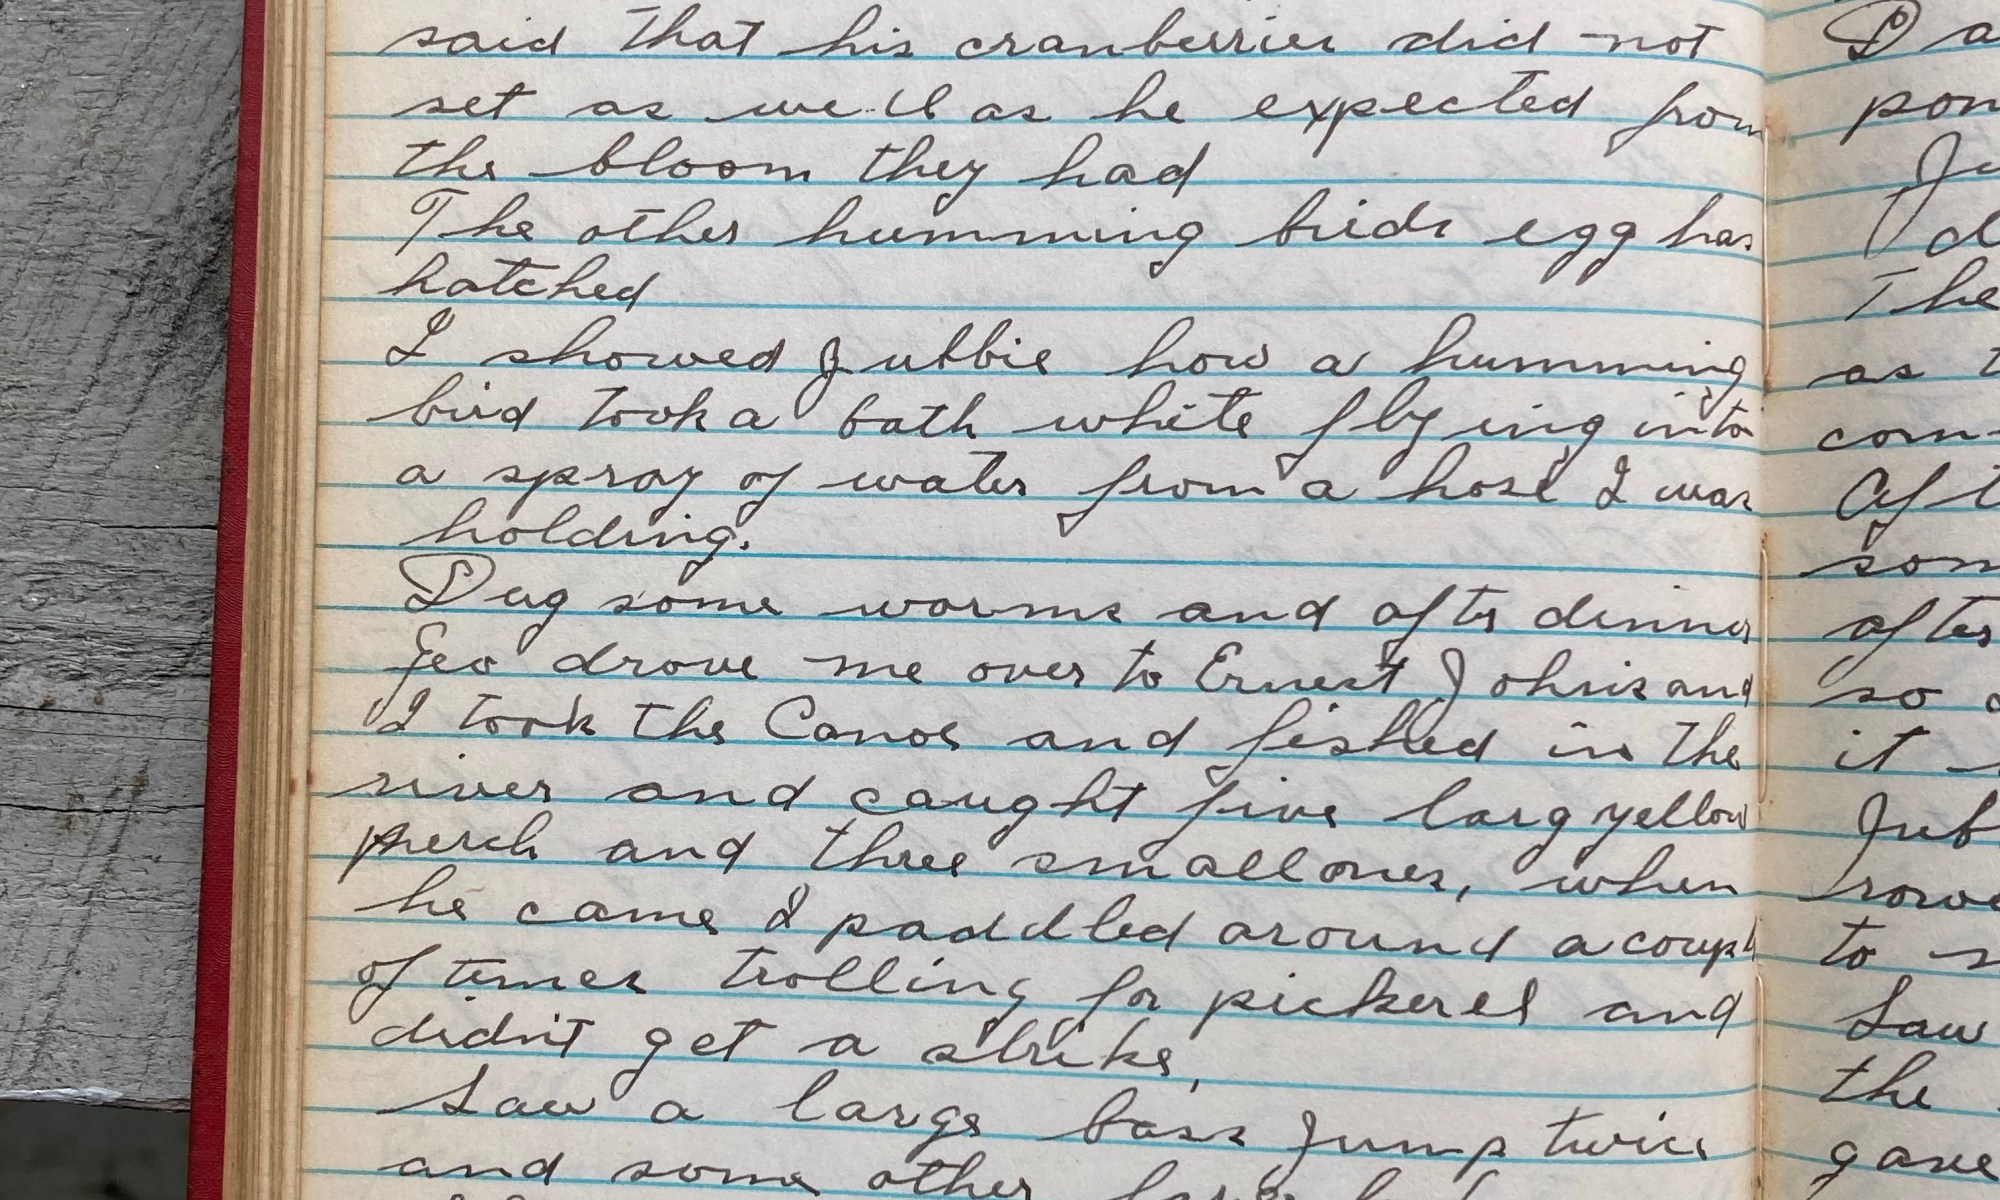 said that his cranberries did not
set as well as he expected from
the bloom they had
The other humming birds egg has
hatched
I showed Jubbie how a humming
bird took a bath while flying into
a spray of water from a hose I was
holding.
Dug some worms and after dinner
Geo drove me over to Ernest Johns and
I took the Canoe and fished in the
river and caught five larg yellow
perch and three small ones, when
he came I paddled around a coupl
of times trolling for pickerel and
didn't get a strike,
Saw a large bass jump twice
and some other
D
pon
Ju
d
The
as t
com
Aft
som
after
so
it
Jub
rowe
to
Saw
the
gave